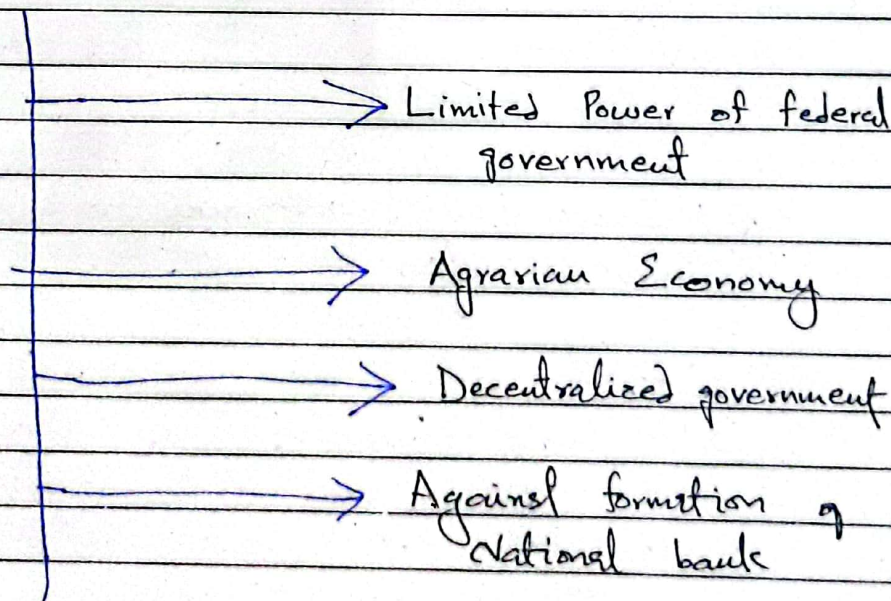 Limited Power of federal
government
Agrarian Economy
Decentralized government
Against formation of
National bank